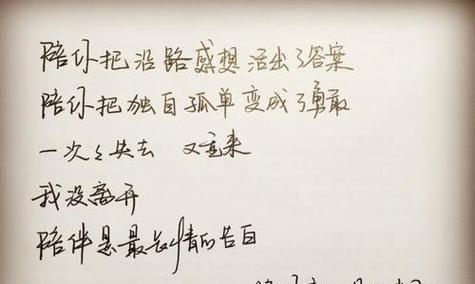 陪你把沿路感想活出了答案
陪你把独自孤单变成了勇敢
一次次失去 又重来
我没离开
陪伴是最长情的告白